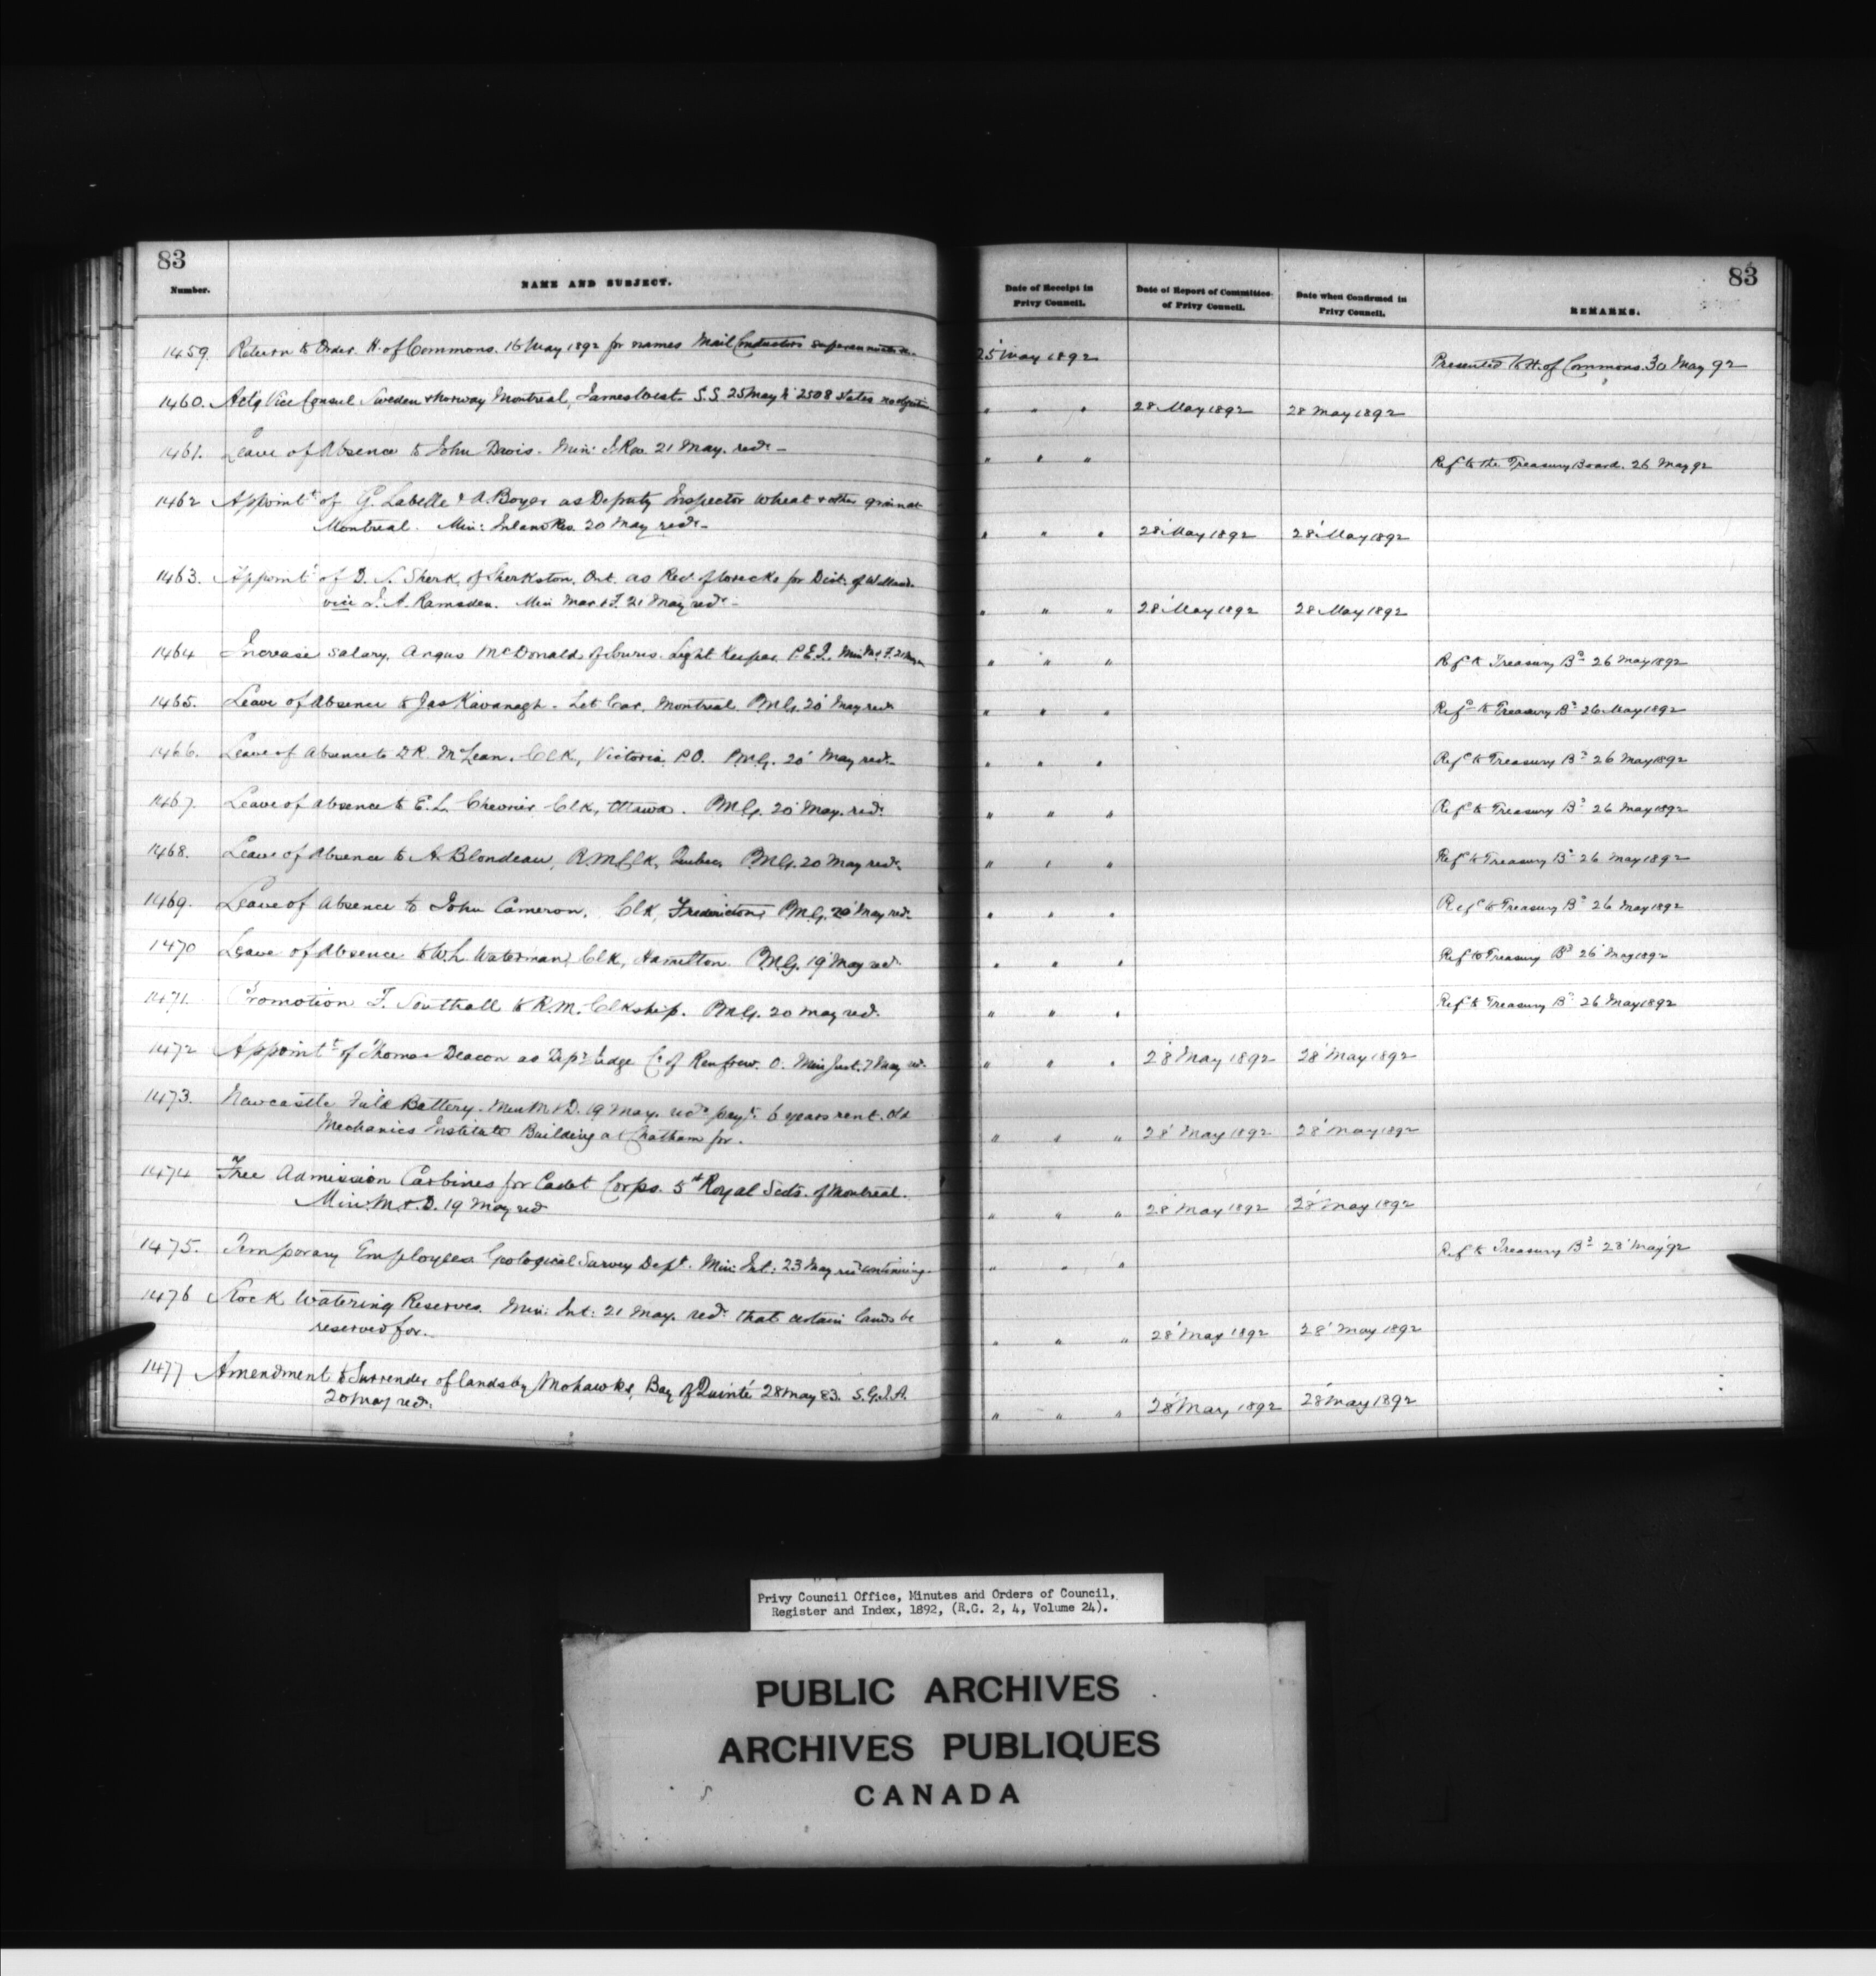 83
83
Number.
NAME AND SUBJECT.
Date of Receipt in Privy Council.
Date of Report of Committee of Privy Council.
Date when Confirmed in Privy Council.
REMARKS.
1459. Return to Order. H. of Commons. 16 May 1892 for names Mail Conductors 25 May 1892 Presented to H. of Commons. 30 May 92
1460. Act'g Vice Consul Sweden & Norway Montreal, James West. S.S. 25 May h 2508 States no " " " 28 May 1892 28 May 1892
1461. Leave of Absence to John Davis. Min: I. Rev. 21 May. recd. " " " Refd to the Treasury Board. 26 May 92
1462 Appointt of G. Labelle & A. Boyer as Deputy Inspector Wheat & other grain at
Montreal. Min: Inland Rev. 20 May recd. " " " 28 May 1892 28 May 1892
1463. Appointt of D. S. Sherk, of Sherkston, Ont. as Recr of Wrecks for Dist. of Welland.
vice S. A. Ramsden. Min Mar & F. 21 May recd. " " " 28 May 1892 28 May 1892
1464 Increase Salary. Angus McDonald, Souris Light Keeper, P.E.I. Min M & F. 21 May " " " Refd to Treasury Bd 26 May 1892
1465. Leave of Absence to Jas Kavanagh. Let Car. Montreal. P.M.G. 20 May recd. " " " Refd to Treasury Bd 26 May 1892
1466. Leave of Absence to D R. McLean. Clk, Victoria P.O. P.M.G. 20 May recd. " " " Refd to Treasury Bd 26 May 1892
1467. Leave of Absence to E. L. Chevrier Clk, Ottawa. P.M.G. 20 May. recd. " " " Refd to Treasury Bd 26 May 1892
1468. Leave of Absence to A. Blondeau, R.M. Clk, Quebec, P.M.G. 20 May recd. " " " Refd to Treasury Bd 26 May 1892
1469. Leave of Absence to John Cameron, Clk, Fredericton, P.M.G. 20 May recd. " " " Refd to Treasury Bd 26 May 1892
1470 Leave of Absence to W. L. Waterman, Clk, Hamilton. P.M.G. 19 May recd. " " " Refd to Treasury Bd 26 May 1892
1471. Promotion F. Southall to R.M. Clkship. P.M.G. 20 May recd. " " " Refd to Treasury Bd 26 May 1892
1472 Appointt of Thomas Deacon as Depy Judge Co of Renfrew. O. Min Just. 7 May recd. " " " 28 May 1892 28 May 1892
1473. Newcastle Field Battery. Min M & D. 19 May. recd payt. 6 years rent. Old
Mechanics Institute Building at Chatham for. " " " 28 May 1892 28 May 1892
1474 Free Admission Carbines for Cadet Corps. 5th Royal Scots. of Montreal.
Min. M. & D. 19 May recd " " " 28 May 1892 28 May 1892
1475. Temporary Employees Geological Survey Dept. Min: Int: 23 May recd continuing. " " " Refd to Treasury Bd 28 May 92
1476 Stock Watering Reserves. Min: Int: 21 May. recd. that certain lands be
reserved for. " " " 28 May 1892 28 May 1892
1477 Amendment to Surrender of lands by Mohawks, Bay of Quinté 28 May 83. S.G.I.A.
20 May recd. " " " 28 May 1892 28 May 1892
Privy Council Office, Minutes and Orders of Council,
Register and Index, 1892, (R.G. 2, 4, Volume 24).
PUBLIC ARCHIVES
ARCHIVES PUBLIQUES
CANADA